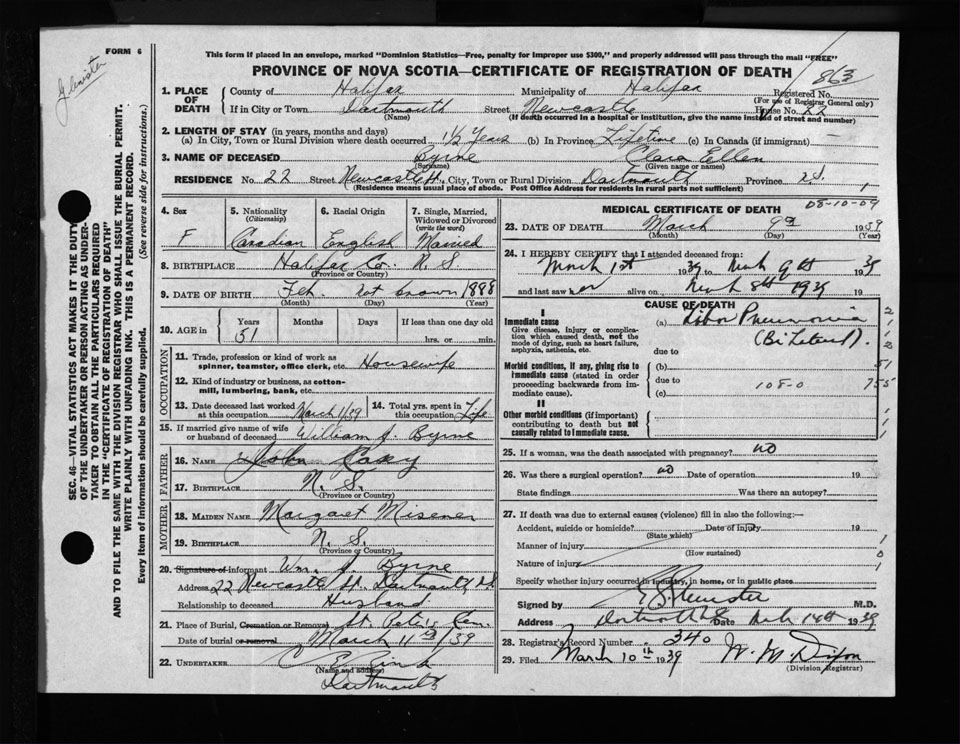 FORM 6
Glenister
This form if placed in an envelope, marked "Dominion Statistics—Free, penalty for improper use $300," and properly addressed will pass through the mail "FREE"
PROVINCE OF NOVA SCOTIA—CERTIFICATE OF REGISTRATION OF DEATH
863
1. PLACE OF DEATH County of Halifax Municipality of Halifax Registered No.
(For use of Registrar General only)
If in City or Town Dartmouth Street Newcastle House No. 22
(Name) (If death occurred in a hospital or institution, give the name instead of street and number)
2. LENGTH OF STAY (in years, months and days)
(a) In City, Town or Rural Division where death occurred 1½ Years (b) In Province Lifetime (c) In Canada (if immigrant) —
3. NAME OF DECEASED Byrne Clara Ellen
(Surname) (Given name or names)
RESIDENCE No. 22 Street Newcastle St. City, Town or Rural Division Dartmouth Province N.S. 1
(Residence means usual place of abode. Post Office Address for residents in rural parts not sufficient)
SEC. 46—VITAL STATISTICS ACT MAKES IT THE DUTY
OF THE UNDERTAKER OR PERSON ACTING AS UNDER-
TAKER TO OBTAIN ALL THE PARTICULARS REQUIRED
IN THE "CERTIFICATE OF REGISTRATION OF DEATH"
AND TO FILE THE SAME WITH THE DIVISION REGISTRAR WHO SHALL ISSUE THE BURIAL PERMIT.
WRITE PLAINLY WITH UNFADING INK. THIS IS A PERMANENT RECORD.
Every item of information should be carefully supplied. (See reverse side for instructions.)
4. Sex 5. Nationality 6. Racial Origin 7. Single, Married,
(Citizenship) Widowed or Divorced
(write the word)
F Canadian English Married
8. BIRTHPLACE Halifax Co. N.S
(Province or Country)
9. DATE OF BIRTH Feb. not known 1888
(Month) (Day) (Year)
10. AGE in Years Months Days If less than one day old
51 hrs. or min.
OCCUPATION
11. Trade, profession or kind of work as
spinner, teamster, office clerk, etc. Housewife
12. Kind of industry or business, as cotton-
mill, lumbering, bank, etc.
13. Date deceased last worked
at this occupation March 1/39
14. Total yrs. spent in
this occupation Life
15. If married give name of wife
or husband of deceased William J. Byrne
FATHER
16. NAME John
17. BIRTHPLACE N. S.
(Province or Country)
MOTHER
18. MAIDEN NAME Margaret Misener
19. BIRTHPLACE N. S.
(Province or Country)
20. Signature of informant Wm. J. Byrne
Address 22 Newcastle St. Dartmouth N.S.
Relationship to deceased Husband
21. Place of Burial, Cremation or Removal St. Peters Cem.
Date of burial or removal March 11th/39
22. UNDERTAKER
(Name and address)
Dartmouth
D8-10-09
MEDICAL CERTIFICATE OF DEATH
23. DATE OF DEATH March 9th 1939
(Month) (Day) (Year)
24. I HEREBY CERTIFY that I attended deceased from:
March 1st 1939 to March 9th 1939
and last saw her alive on March 8th 1939 19
CAUSE OF DEATH
I
Immediate cause
Give disease, injury or complica-
tion which caused death, not the
mode of dying, such as heart failure,
asphyxia, asthenia, etc.
(a) Lobar Pneumonia
(Bilateral).
due to
Morbid conditions, if any, giving rise to
immediate cause (stated in order
proceeding backwards from im-
mediate cause).
(b)
due to 108-0
(c)
II
Other morbid conditions (if important)
contributing to death but not
causally related to immediate cause.
2
1
1
2
51
755
1
1
1
25. If a woman, was the death associated with pregnancy? no
26. Was there a surgical operation? no Date of operation 19
State findings Was there an autopsy?
27. If death was due to external causes (violence) fill in also the following:—
Accident, suicide or homicide? Date of injury 19
(State which)
Manner of injury 1
(How sustained) 0
Nature of injury 1
Specify whether injury occurred in industry, in home, or in public place
Signed by Glenister M.D.
Address Dartmouth N.S. Date March 14th 1939
28. Registrar's Record Number 340
29. Filed March 10th 1939 W. M. Dixon
(Division Registrar)